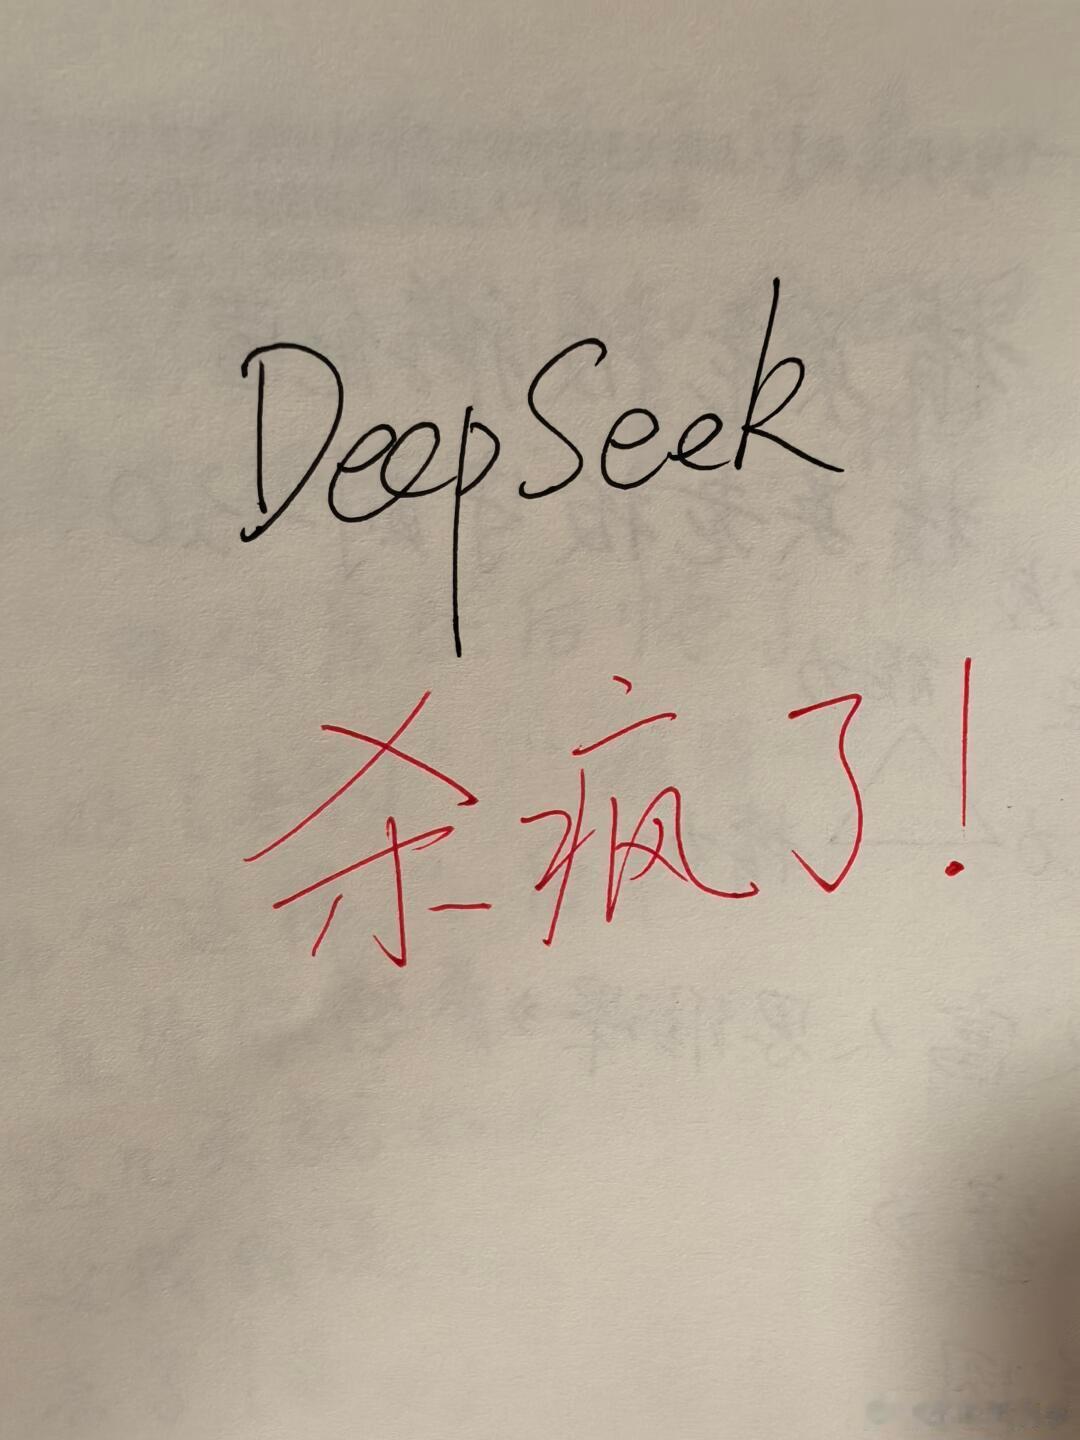 DeepSeek
杀疯了!